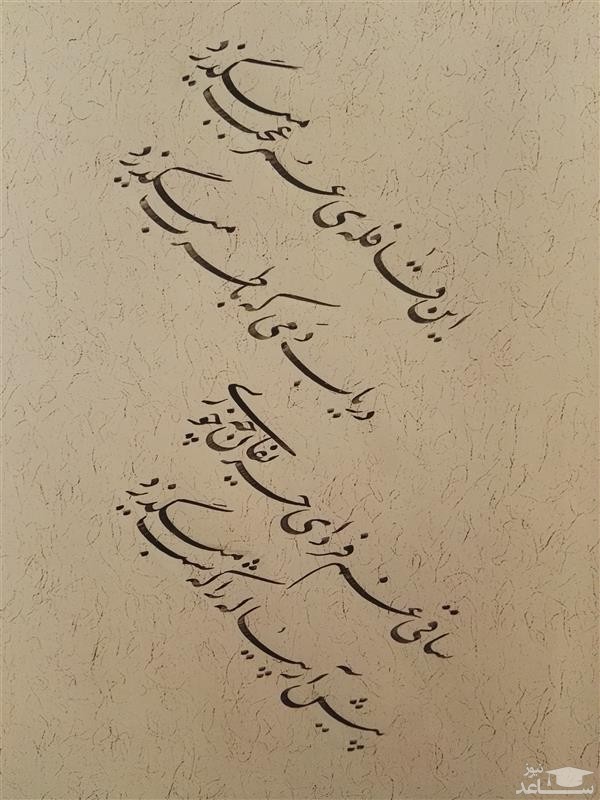 این قافله‌ی عمر عجب میگذرد
دریاب دمی که با طرب میگذرد
ساقی غم فردای حریفان چه خوری
پیش آر پیاله را که شب میگذرد
نیوز
ساعد